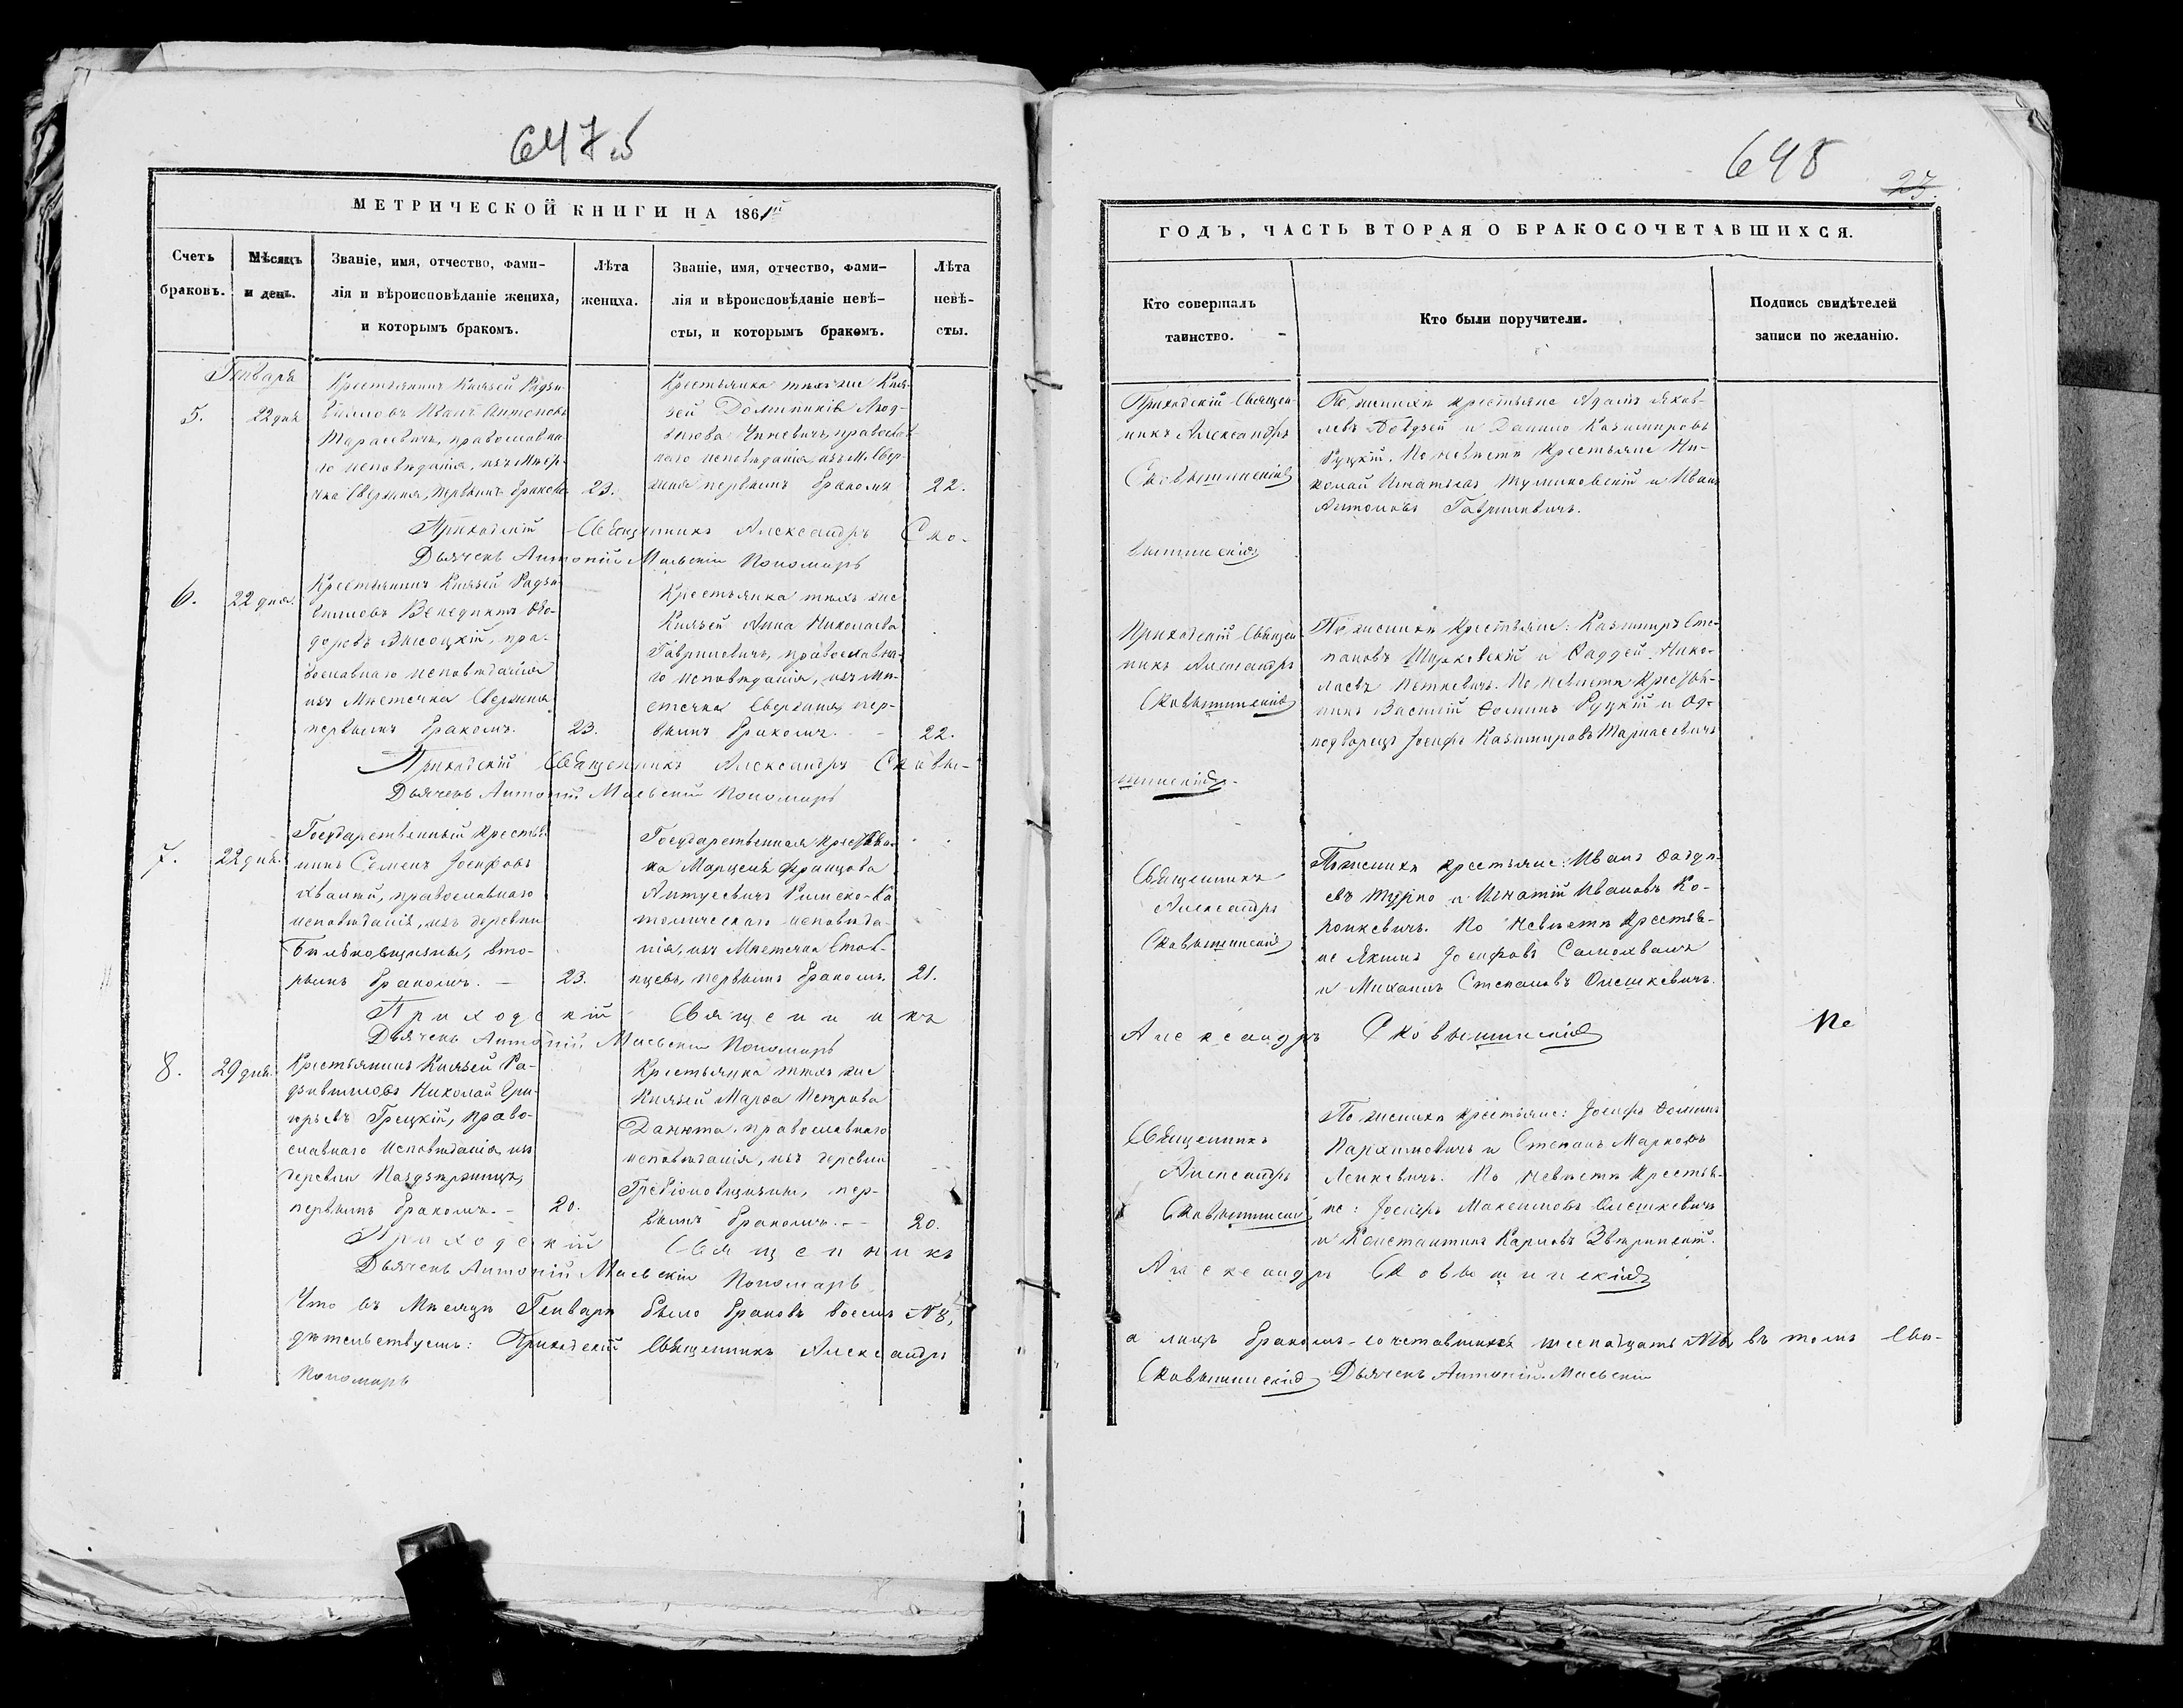 647 об
МЕТРИЧЕСКОЙ КНИГИ НА 1861й
Счетъ браковъ.
Мѣсяцъ и день.
Званіе, имя, отчество, фами-
лія и вѣроисповѣданіе жениха,
и которымъ бракомъ.
Лѣта жениха.
Званіе, имя, отчество, фами-
лія и вѣроисповѣданіе невѣ-
сты, и которымъ бракомъ.
Лѣта невѣ-
сты.
Генварь
5.
22 дня
Крестьянинъ Князей Радзи-
вилловъ Иванъ Антоновъ
Тарасевичъ, православна-
го исповѣданія, изъ Мѣст-
ечка Свержня, первымъ бракомъ
23.
Крестьянка тѣхъ же Кня-
зей Домникія
православ-
наго исповѣданія, изъ М. Свер-
жня первымъ бракомъ
22.
Приходскій Священникъ Александръ Ско-
Дьячекъ Антоній Маевскій Пономарь
6.
22 дня.
Крестьянинъ Князей Радзи-
вилловъ Венедиктъ Ѳео-
доровъ Высоцкій, пра-
вославнаго исповѣданія
изъ Мѣстечка Свержня
первымъ бракомъ.
23.
Крестьянка тѣхъ же
Князей Анна Николаева
Гавриловичъ, православна-
го исповѣданія, изъ Мѣ-
стечка Свержня, пер-
вымъ бракомъ.
22.
Приходскій Священникъ Александръ Сковы-
Дьячекъ Антоній Маевскій Пономарь
7.
22 дня.
Государственный Крестья-
нинъ Семенъ Іосифовъ
православнаго
исповѣданія, изъ деревни
вто-
рымъ бракомъ.
23.
Государственная Крестьян-
ка Марцеля Францова
Антусевичъ Римско-Ка-
толическаго исповѣда-
нія, изъ Мѣстечка Столб-
цевъ, первымъ бракомъ.
21.
Приходскій Священникъ
Дьячекъ Антоній Маевскій Пономарь
8.
29 дня.
Крестьянинъ Князей Ра-
дзивилловъ Николай Гри-
горьевъ Грецкій, право-
славнаго исповѣданія, изъ
деревни
первымъ бракомъ.
20.
Крестьянка тѣхъ же
Князей Марѳа Петрова
Данюта, православнаго
исповѣданія, изъ деревни
пер-
вымъ бракомъ.
20.
Приходскій Священникъ
Дьячекъ Антоній Маевскій Пономарь
Что въ Мѣсяцѣ Генварѣ было браковъ восемь № 8,
дѣтельствуемъ: Приходскій Священникъ Александръ
Пономарь
648
23.
ГОДЪ, ЧАСТЬ ВТОРАЯ О БРАКОСОЧЕТАВШИХСЯ.
Кто совершалъ
таинство.
Кто были поручители.
Подпись свидѣтелей
записи по желанію.
Приходскій Священ-
никъ Александръ
Сковышинскій
По женихѣ крестьяне Адамъ Яков-
левъ и Данило Казимировъ
Руцкій. По невѣстѣ Крестьяне Ни-
колай Игнатьевъ и Иванъ
Антоновъ Гавриловичъ.
вышинскій
Приходскій Священ-
никъ Александръ
Сковышинскій
По женихѣ Крестьяне: Казимиръ Сте-
пановъ и Ѳаддей Нико-
лаевъ Петкевичъ. По невѣстѣ Крестья-
нинъ Василій Ѳоминъ Руцкій и Од-
нодворецъ Іосифъ Казимировъ Тарасевичъ
шинскій
Священникъ
Александръ
Сковышинскій
По женихѣ крестьяне: Иванъ Ѳадде-
евъ Турко и Игнатій Ивановъ Ко-
нонкевичъ. По невѣстѣ Крестья-
не Якимъ Іосифовъ Самохвалъ
и Михаилъ Степановъ Олешкевичъ.
Александръ Сковышинскій
Не
Священникъ
Александръ
Сковышинскій
По женихѣ Крестьяне: Іосифъ Ѳоминъ
Пархимовичъ и Степанъ Марковъ
Ленкевичъ. По невѣстѣ Крестья-
не: Іосифъ Максимовъ Олешкевичъ
и Константинъ Карповъ
Александръ Сковышинскій
а лицъ бракомъ сочетавшихся шеснадцать №16 въ томъ Сви-
Сковышинскій Дьячекъ Антоній Маевскій